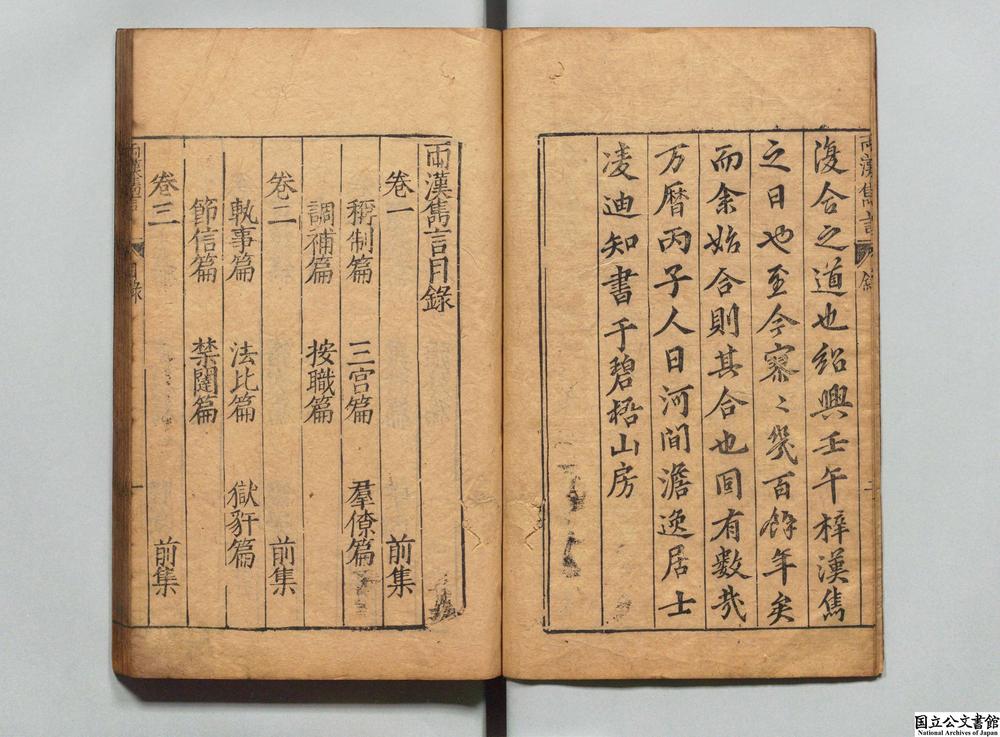 復合之道也紹興壬午梓漢雋
之日也至今寥〻幾百餘年矣
而余始合則其合也回有数哉
万暦丙子人日河間澹逸居士
凌迪知書于碧梧山房
兩漢雋言目錄
卷一 前集
稱制篇 三宫篇 羣僚篇
調補篇 按職篇
卷二 前集
執事篇 法比篇 獄豻篇
節信篇 禁闥篇
卷三 前集
国立公文書館
National Archives of Japan